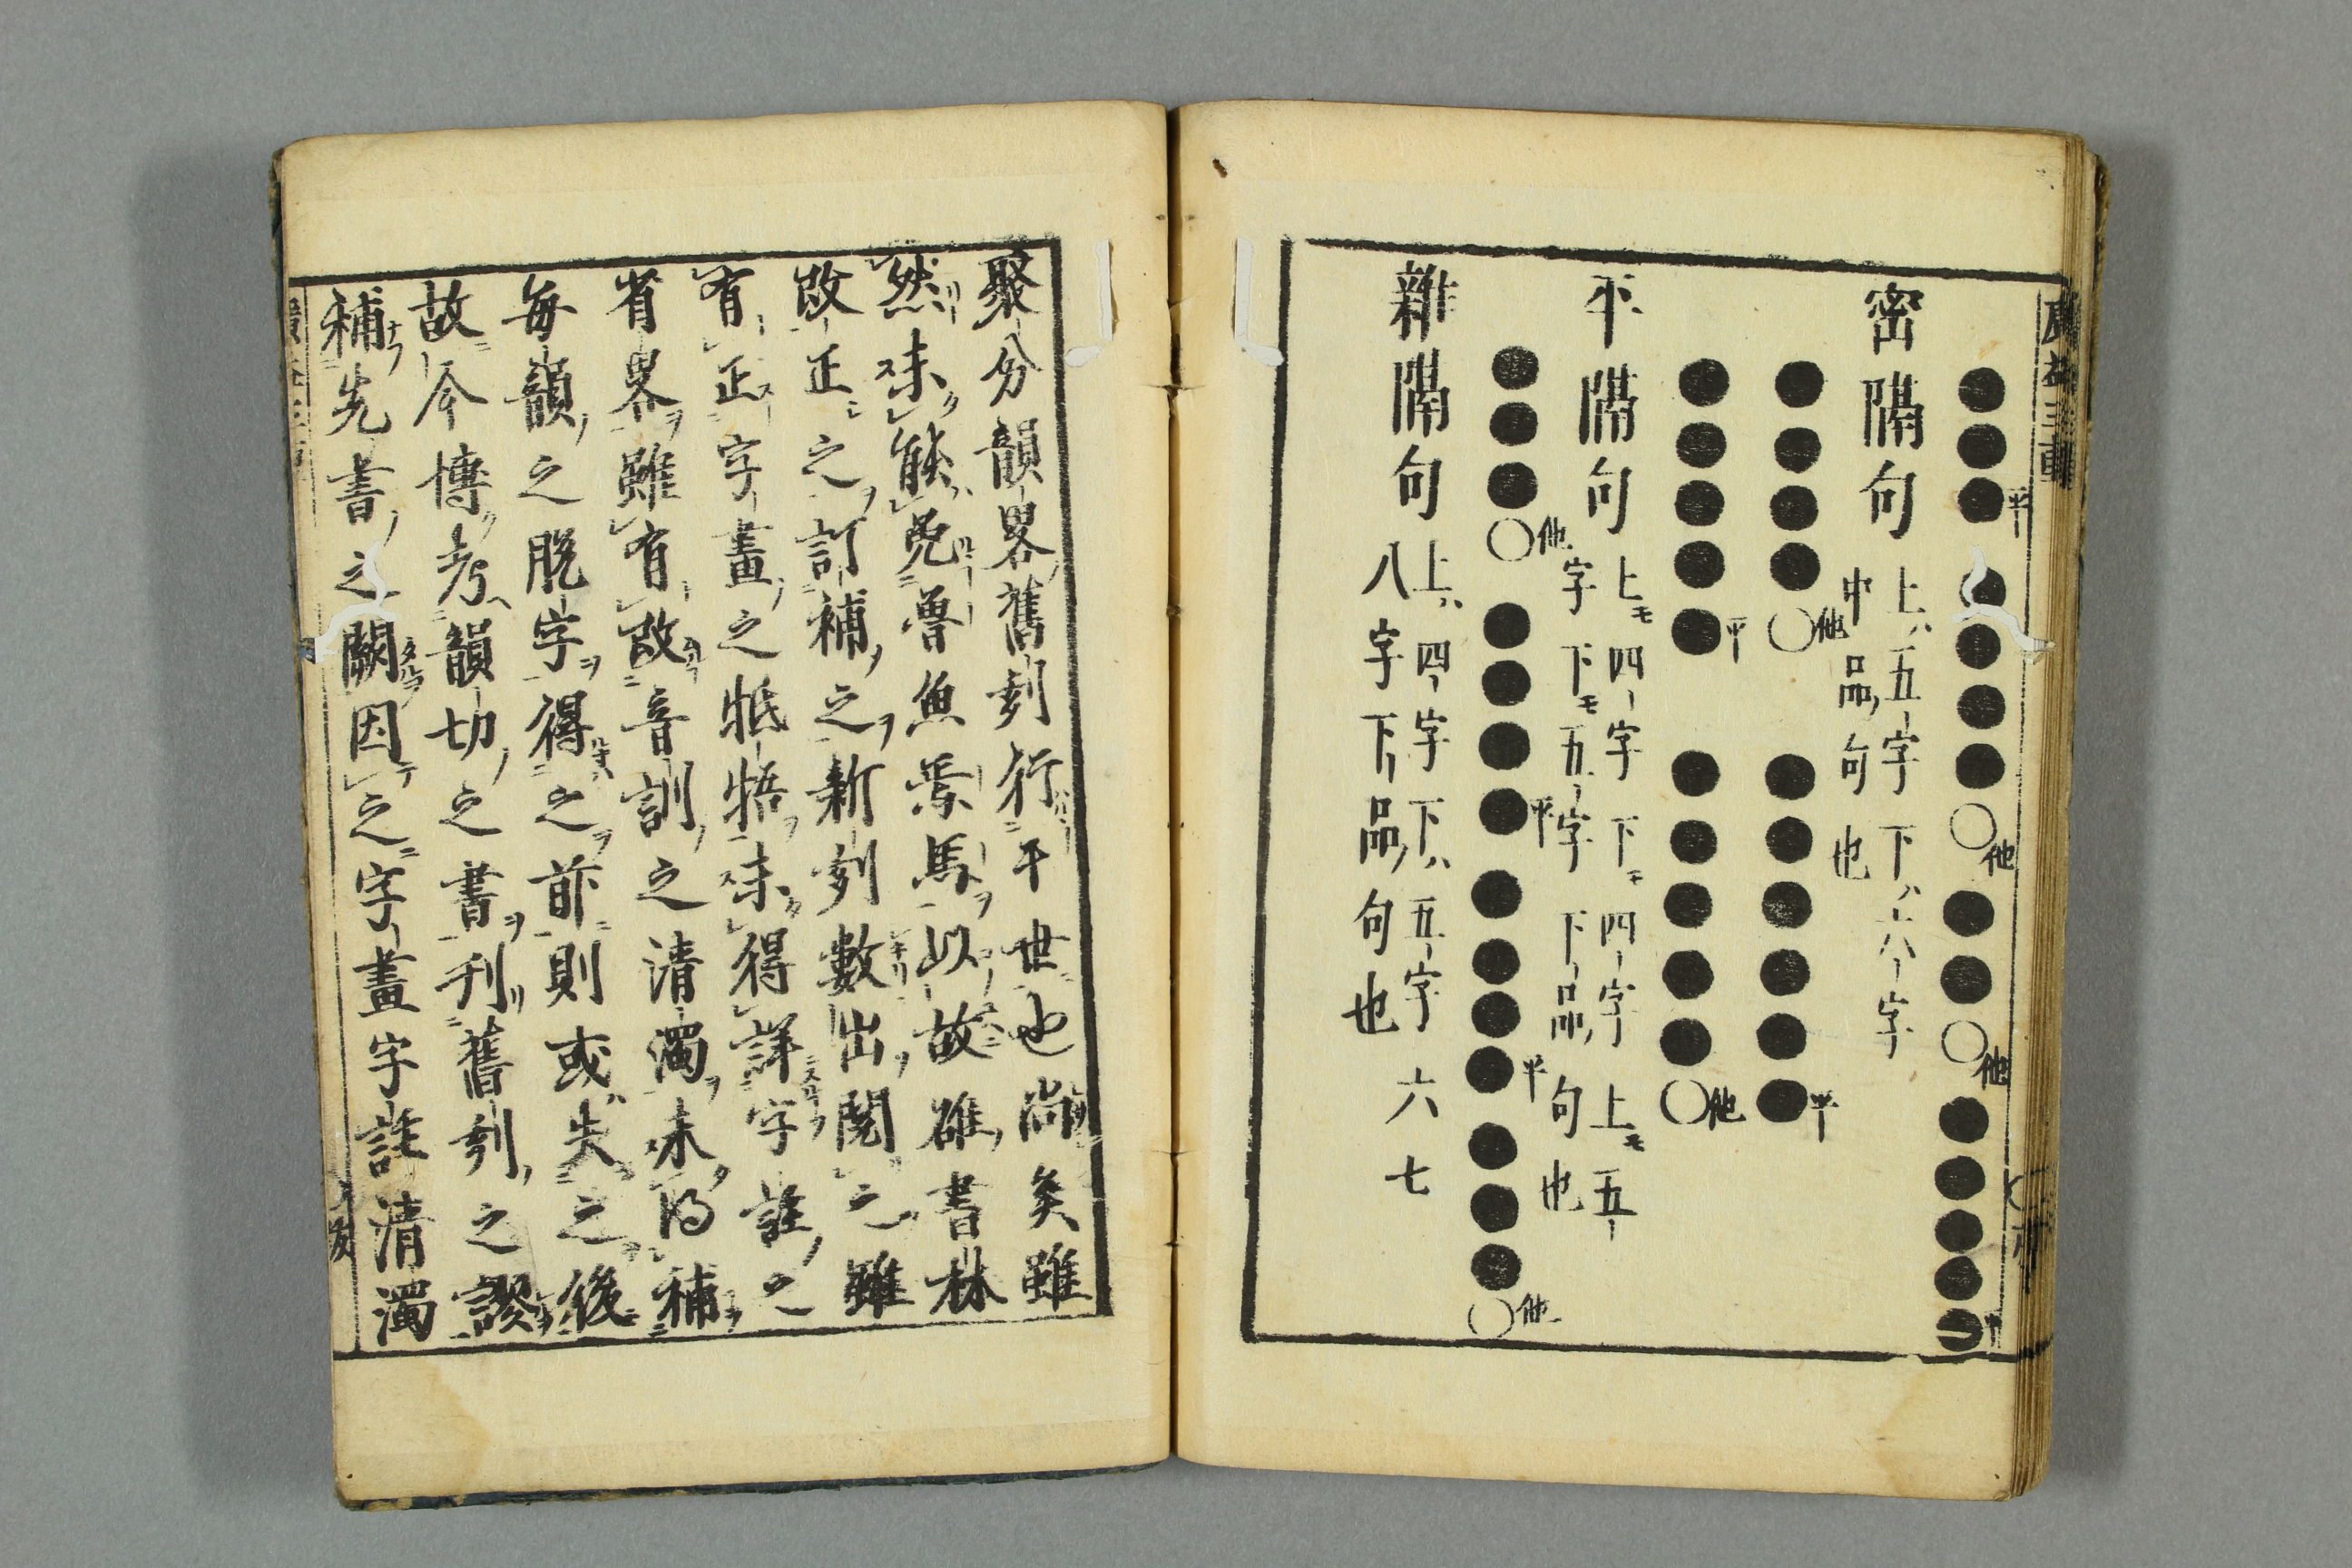 平
他
他
密隔句
上ハ五字下ハ六字
中品句也
他
平
平
他
平隔句
上モ四字下モ四字上モ五
字下モ五字下品句也
他
平
平
他
雜隔句
上ハ四字下ハ五字六七
八字下品句也
聚分韻畧舊刻行于世也尚矣雖
然未能免魯魚焉馬以故碓書林
改正之訂補之新刻數出閱之雖
有正字畫之牴牾未得詳字註之
省畧雖有改音訓之清濁未得補
毎韻之脫字得之前則或失之後
故今博考韻切之書刊舊刻之謬
補先書之闕因之字畫字註清濁